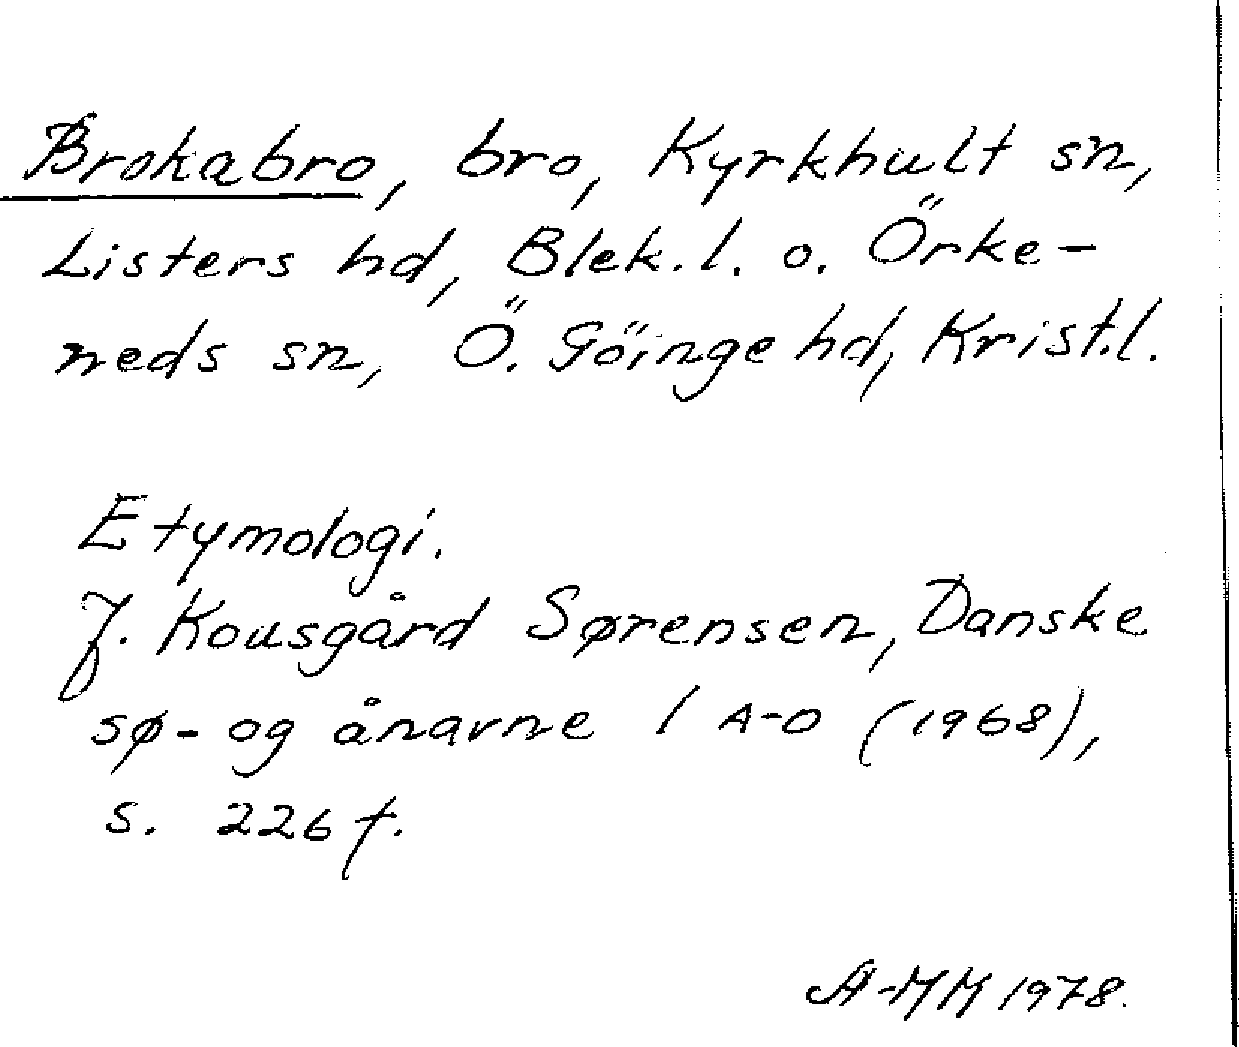 Brokabro, bro, Kyrkhult sn,
Listers hd, Blek.l. o. Örke-
neds sn, Ö. Göinge hd, Krist.l.
Etymologi.
J. Kousgård Sørensen, Danske
sø- og ånavne 1 A-O (1968),
s. 226 f.
A-MM 1978.